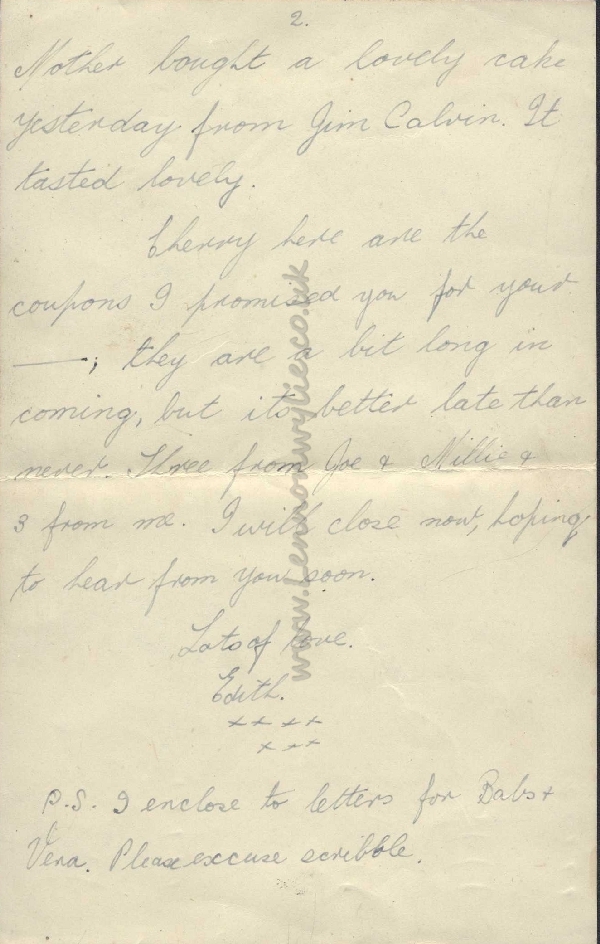 2.
Mother bought a lovely cake
yesterday from Jim Calvin. It
tasted lovely.
Cherry here are the
coupons I promised you for your
———; they are a bit long in
coming, but its better late than
never. Three from Joe & Millie &
3 from me. I will close now, hoping
to hear from you soon.
Lots of love.
Edith.
++++
+++
P.S. I enclose to letters for Babs +
Vera. Please excuse scribble.
www.Lennonwylie.co.uk